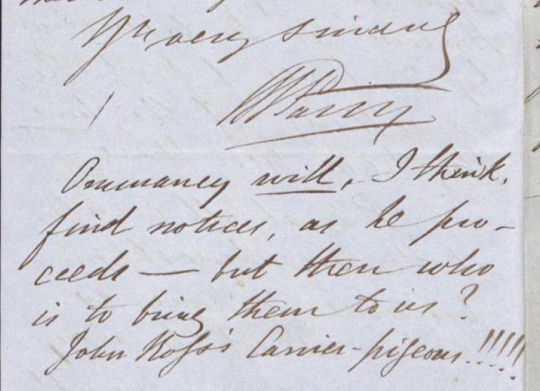 Yrs very sincerely
WEParry
Ommaney will, I think,
find notices, as he pro-
ceeds — but then who
is to bring them to us?
John Ross's Carrier-pigeons!!!!!